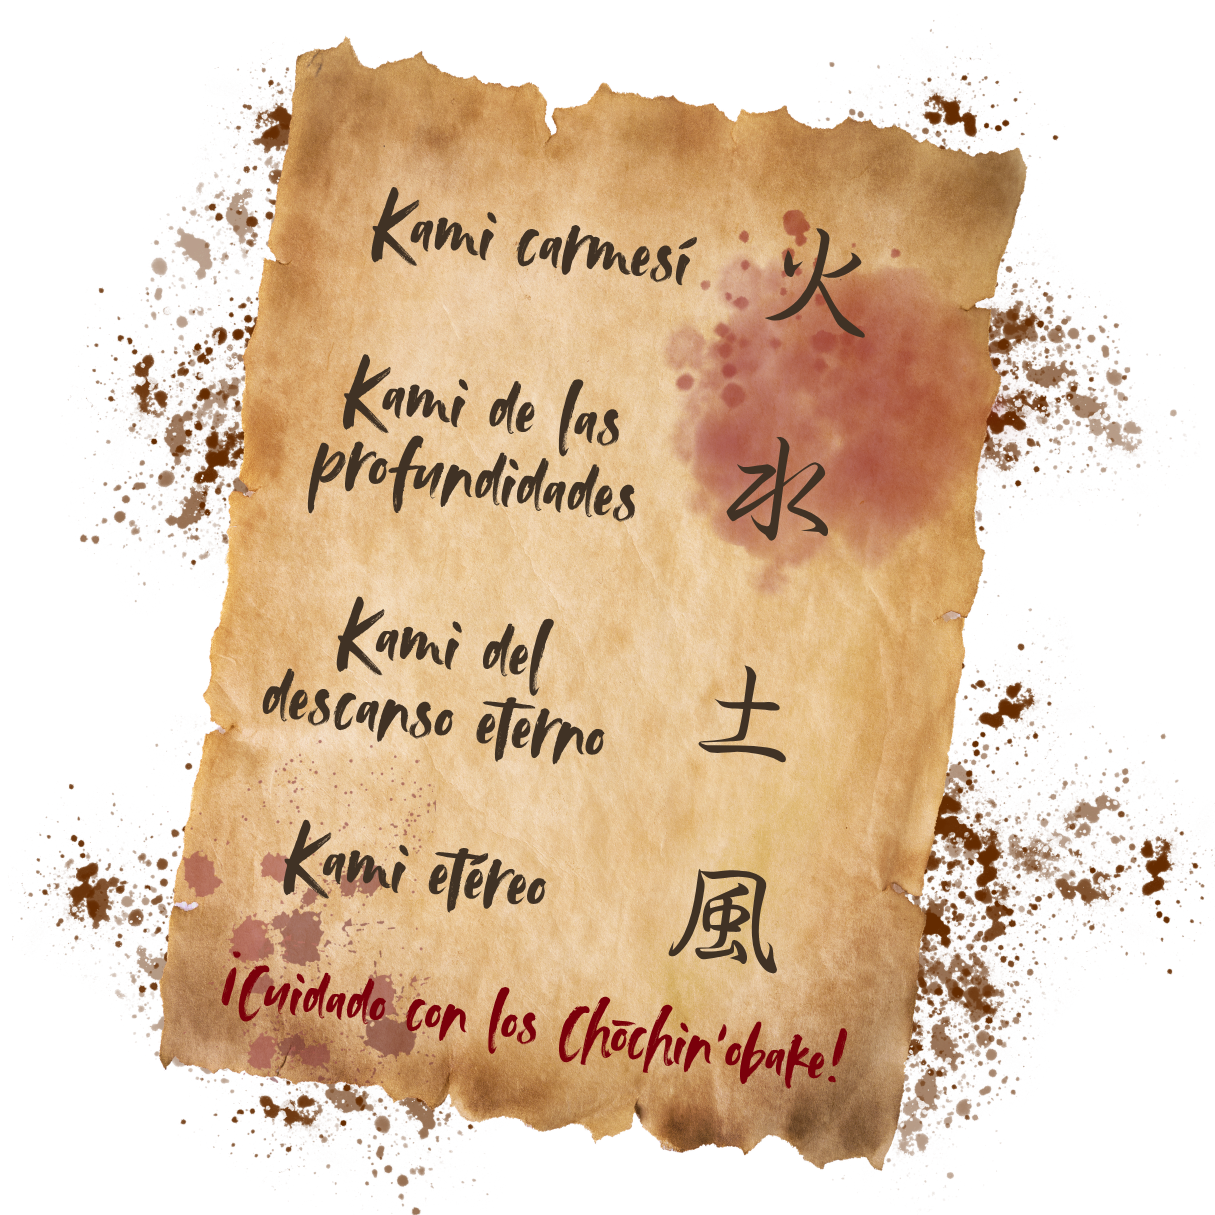 Kami carmesí 火
Kami de las
profundidades 水
Kami del
descanso eterno 土
Kami etéreo 風
¡Cuidado con los Chōchin'obake!